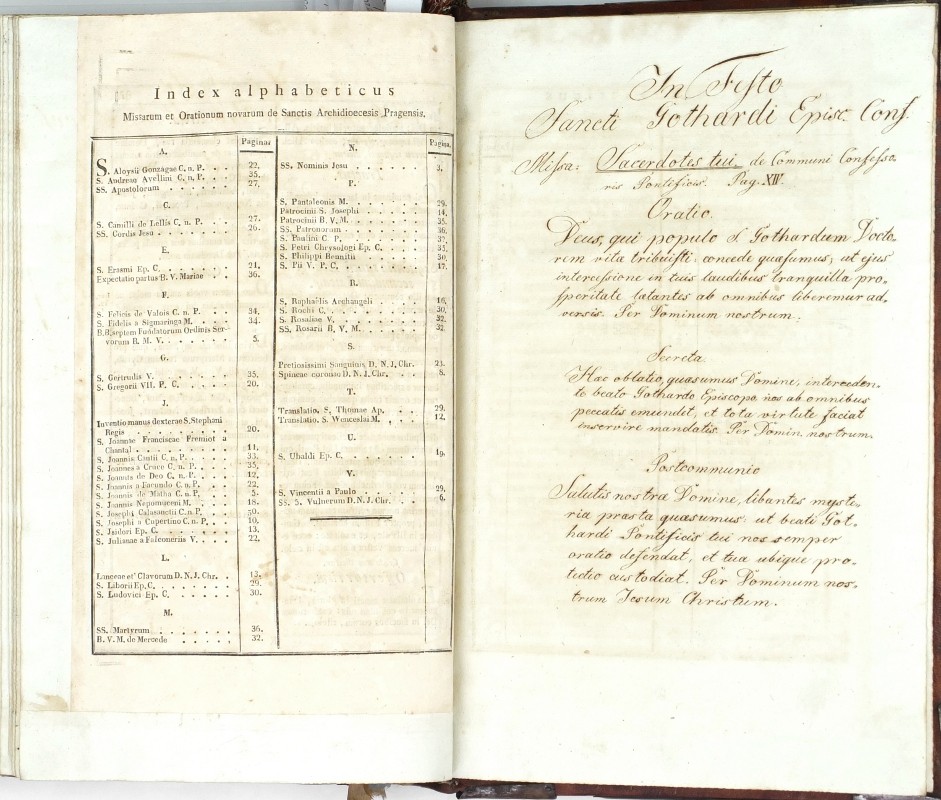 Index alphabeticus
Missarum et Orationum novarum de Sanctis Archidioecesis Pragensis.
Pagina
A.
S. Aloysii Gonzagae C. n. P. . . . 22.
S. Andreae Avellini C. n. P. . . . 35.
SS. Apostolorum . . . . . . 27.
C.
S. Camilli de Lellis C. n. P. . . . 27.
SS. Cordis Jesu . . . . . . 26.
E.
S. Erasmi Ep. C. . . . . . 21.
Expectatio partus B. V. Mariae . . . 36.
F.
S. Felicis de Valois C. n. P. . . . 34.
S. Fidelis a Sigmaringa M. . . . 34.
B.B. septem Fundatorum Ordinis Ser-
vorum B. M. V. . . . . . 5.
G.
S. Gertrudis V. . . . . . 35.
S. Gregorii VII. P. C. . . . . 20.
J.
Inventio manus dexterae S. Stephani
Regis . . . . . . . 20.
S. Joannae Franciscae Fremiot a
Chantal . . . . . . . 11.
S. Joannis Cantii C. n. P. . . . . 33.
S. Joannes a Cruce C. n. P. . . . 35.
S. Joannis de Deo C. n. P. . . . 12.
S. Joannis a Facundo C. n. P. . . . 22.
S. Joannis de Matha C. n. P. . . . 5.
S. Joannis Nepomuceni M. . . . 18.
S. Josephi Calasanctii C. n P. . . . 30.
S. Josephi a Cupertino C. n. P. . . . 10.
S. Isidori Ep. C. . . . . . 13.
S. Julianae a Falconeriis V. . . . 22.
L.
Lanceae et Clavorum D. N. J. Chr. . . 13.
S. Liborii Ep. C. . . . . . 29.
S. Ludovici Ep. C. . . . . . 30.
M.
SS. Martyrum . . . . . . 36.
B. V. M. de Mercede . . . . . 32.
Pagina.
N.
SS. Nominis Jesu . . . . . 3.
P.
S. Pantaleonis M. . . . . . 29.
Patrocinii S. Josephi . . . . . 14.
Patrocinii B. V. M. . . . . . 35.
SS. Patronorum . . . . . . 36.
S. Paulini C. P. . . . . . 32.
S. Petri Chrysologi Ep. C. . . . 35.
S. Philippi Benitii . . . . . 30.
S. Pii V. P. C. . . . . . 17.
R.
S. Raphaëlis Archangeli . . . . 16.
S. Rochi C. . . . . . . 30.
S. Rosaliae V. . . . . . . 32.
SS. Rosarii B. V. M. . . . . 32.
S.
Pretiosissimi Sanguinis D. N. J. Chr. 23.
Spineae coronae D. N. J. Chr. . . . 8.
T.
Translatio. S. Thomae Ap. . . . 29.
Translatio. S. Wenceslai M. . . . 12.
U.
S. Ubaldi Ep. C. . . . . . 19.
V.
S. Vincentii a Paulo . . . . . 29.
SS. 5. Vulnerum D. N. J. Chr. . . . 6.
In Festo
Sancti Gothardi Episc. Conf.
Missa: Sacerdotes tui. de Communi Confesso-
ris Pontificis. Pag. XIV.
Oratio.
Deus, qui populo S. Gothardum Docto-
rem vita tribuisti: concede quasumus; ut ejus
intercessione in tuis laudibus tranquilla pro-
speritate latantes ab omnibus liberemur ad-
versis. Per Dominum nostrum.
Secreta.
Hac oblatio, quasumus Domine, interceden-
te beato Gothardo Episcopo nos ab omnibus
peccatis emundet, et tota virtute faciat
inservire mandatis. Per Domin. nostrum.
Postcommunio
Salutis nostræ Domine, libantes myste-
ria præsta quæsumus: ut beati Got-
hardi Pontificis tui nos semper
oratio defendat, et tua ubique pro-
tectio custodiat. Per Dominum nos-
trum Jesum Christum.